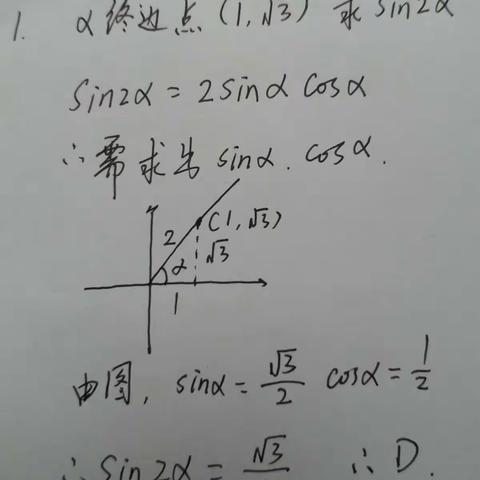 1. α终边点(1,√3) 求sin2α
Sin2α = 2sinα cosα
∴需求出 sinα. cosα.
(1,√3)
2
√3
α
1
由图, sinα = √3/2 cosα = 1/2
∴ Sin2α = √3 ∴ D.